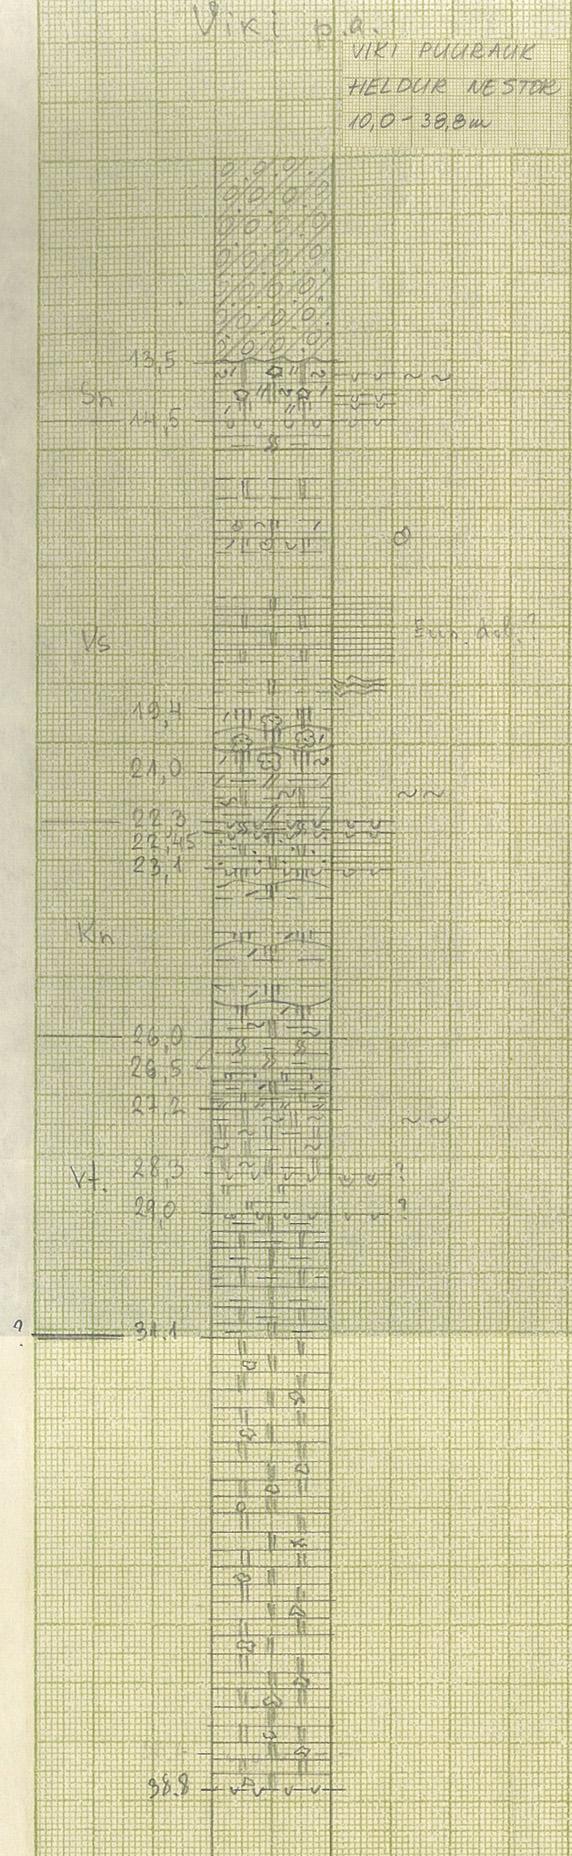 Viki p.a.
VIKI PUURAUK
HELDUR NESTOR
10,0 - 38,8m
13,5
Sn
14,5
Vs
19,4
21,0
22,3
22,45
23,1
Kn
26,0
26,5
27,2
28,3 ?
Vt.
29,0 ?
? 31.1
38.8